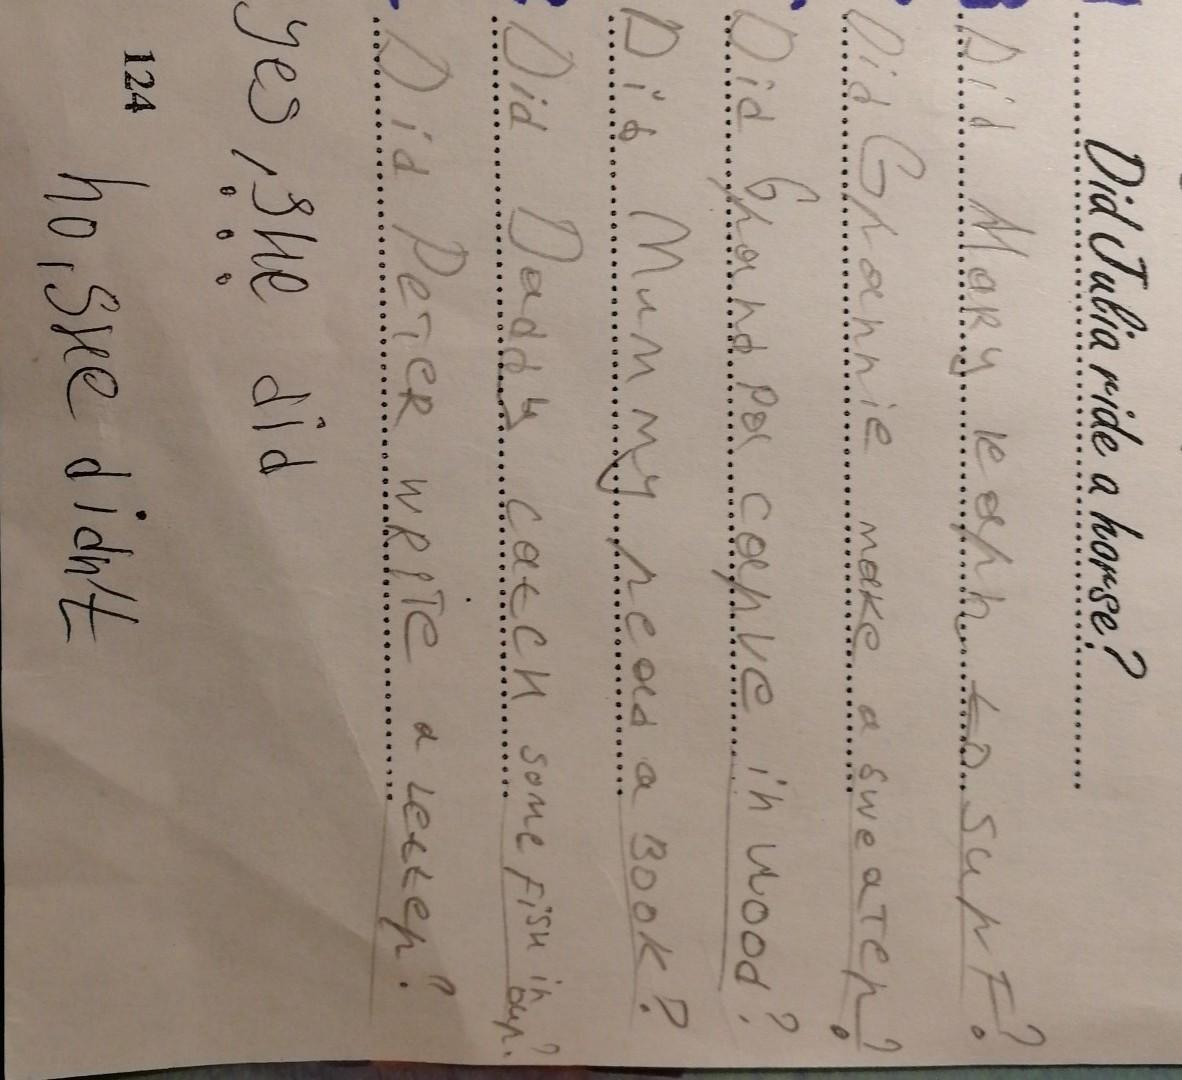 Did Julia ride a horse?
Did Mary learn to surf?
Did Grannie make a sweater?
Did Grandpa carve in wood?
Did Mummy read a book?
Did Daddy catch some fish in
Did Peter write a letter?
yes, she did
124
no, she didn't